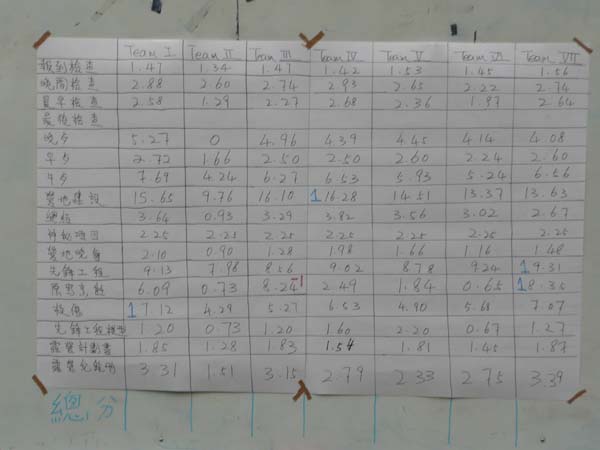 Team I Team II Team III Team IV Team V Team VI Team VII
報到檢查 1.47 1.34 1.47 1.42 1.53 1.45 1.56
晚間檢查 2.88 2.60 2.74 2.93 2.65 2.22 2.74
晨早檢查 2.58 1.29 2.27 2.68 2.36 1.97 2.64
最後檢查
晚夕 5.27 0 4.96 4.39 4.45 4.14 4.08
早夕 2.72 1.66 2.50 2.50 2.60 2.24 2.60
午夕 7.69 4.24 6.27 6.53 5.93 5.24 6.56
營地建設 15.65 9.76 16.10 1 16.28 14.51 13.37 13.63
3.64 0.93 3.29 3.82 3.56 3.02 2.67
項目 2.25 2.25 2.25 2.25 2.25 2.25 2.25
營地晚會 2.10 0.90 1.28 1.98 1.66 1.16 1.48
先鋒工程 9.13 7.98 8.56 9.02 8.78 9.24 1 9.31
原野烹飪 6.09 0.73 8.24 -1 2.49 1.84 0.65 1 8.35
1 7.12 4.29 5.27 6.53 4.90 5.68 7.07
先鋒工程模型 1.20 0.73 1.20 1.60 2.20 0.67 1.27
露營計劃書 1.85 1.28 1.83 1.54 1.81 1.45 1.87
露營 3.31 1.51 3.15 2.79 2.33 2.75 3.39
總分